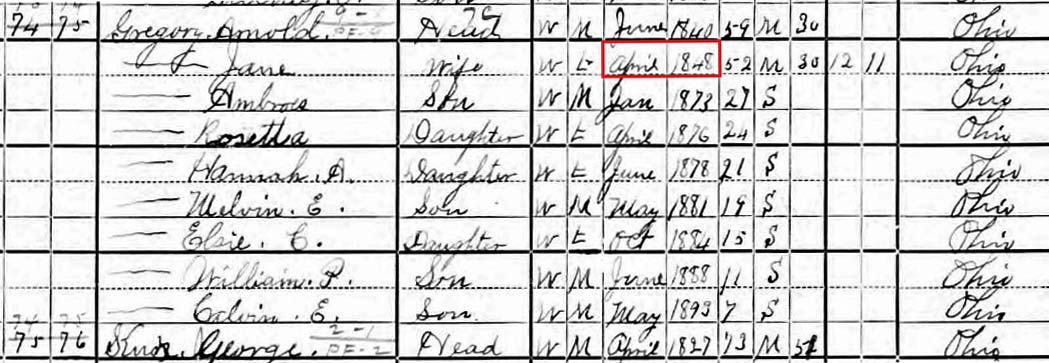 74 75 Gregory Arnold Head W M June 1840 59 M 30 Ohio
— Jane Wife W F April 1848 52 M 30 12 11 Ohio
— Ambrois Son W M Jan 1873 27 S Ohio
— Rosetha Daughter W F April 1876 24 S Ohio
— Hannah. A. Daughter W F June 1878 21 S Ohio
— Melvin. E. Son W M May 1881 19 S Ohio
— Elsie. C. Daughter W F Oct 1884 15 S Ohio
— William. P. Son W M June 1888 11 S Ohio
— Calvin. E. Son W M May 1893 7 S Ohio
75 76 George. Head W M April 1827 73 M Ohio